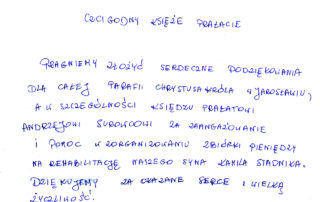 CZCIGODNY KSIĘŻE PRAŁACIE
PRAGNIEMY ZŁOŻYĆ SERDECZNE PODZIĘKOWANIA
DLA CAŁEJ PARAFII CHRYSTUSA KRÓLA W JAROSŁAWIU,
A W SZCZEGÓLNOŚCI KSIĘDZU PRAŁATOWI
ANDRZEJOWI SUROWCOWI ZA ZAANGAŻOWANIE
I POMOC W ZORGANIZOWANIU ZBIÓRKI PIENIĘDZY
NA REHABILITACJĘ NASZEGO SYNA KAMILA STADNIKA.
DZIĘKUJEMY ZA OKAZANE SERCE I WIELKĄ
ŻYCZLIWOŚĆ.